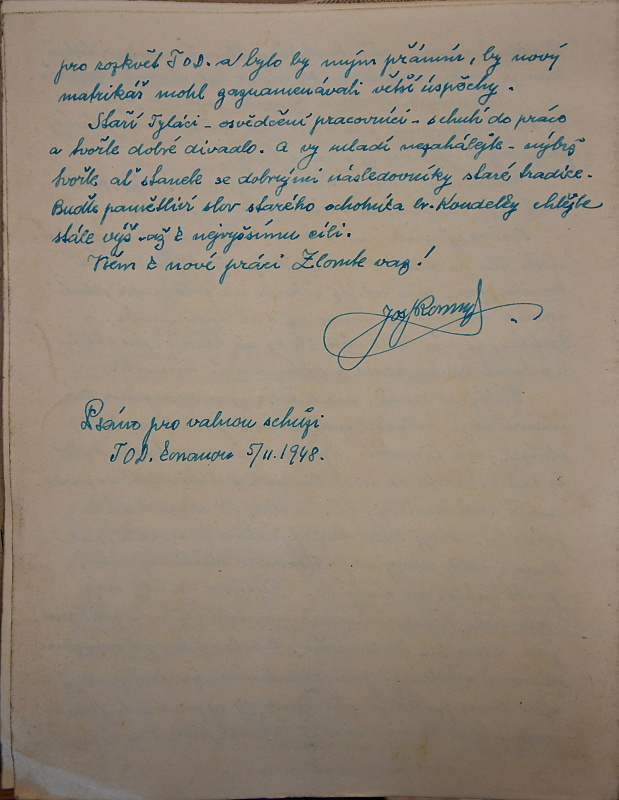 pro rozkvět TOD. a bylo by mým přáním, by nový
matrikář mohl zaznamenávati větší úspěchy.
Staří Tyláci - osvědčení pracovníci - s chutí do práce
a tvořte dobré divadlo. A vy mladí nezahálejte - nýbrž
tvořte ať stanete se dobrými následovníky staré tradice.
Buďte pamětliví slov starého ochotníka br. Koudelky chtějte
stále výš - až k nejvyššímu cíli.
Všem k nové práci Zlomte vaz!
Jos.
Psáno pro valnou schůzi
TOD. 5/II. 1948.